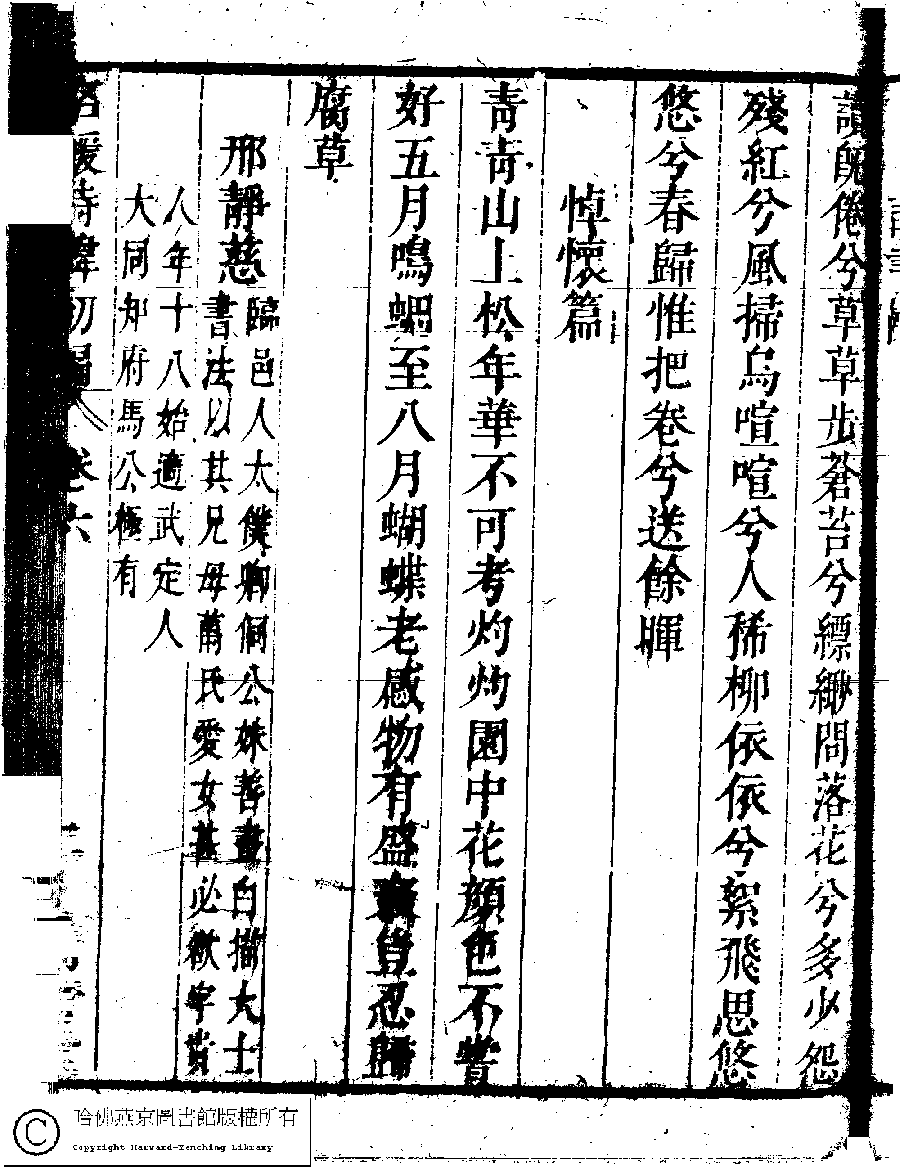 讀既倦兮草草步蒼苔兮縹緲問落花兮多少怨
殘紅兮風掃烏喧喧兮人稀柳依依兮絮飛思悠
悠兮春歸惟把卷兮送餘暉
悼懷篇
青青山上松年華不可考灼灼園中花顏色不嘗
好五月鳴蜩至八月蝴蝶老感物有盛衰豈忍歸
腐草
邢靜慈
臨邑人太僕卿侗公妹善畫白描大士
書法以其兄母萬氏愛女甚必欲字貴
人年十八始適武定人
大同知府馬公極有
名媛詩緯初編 卷六
哈佛燕京圖書館版權所有
Copyright Harvard-Yenching Library